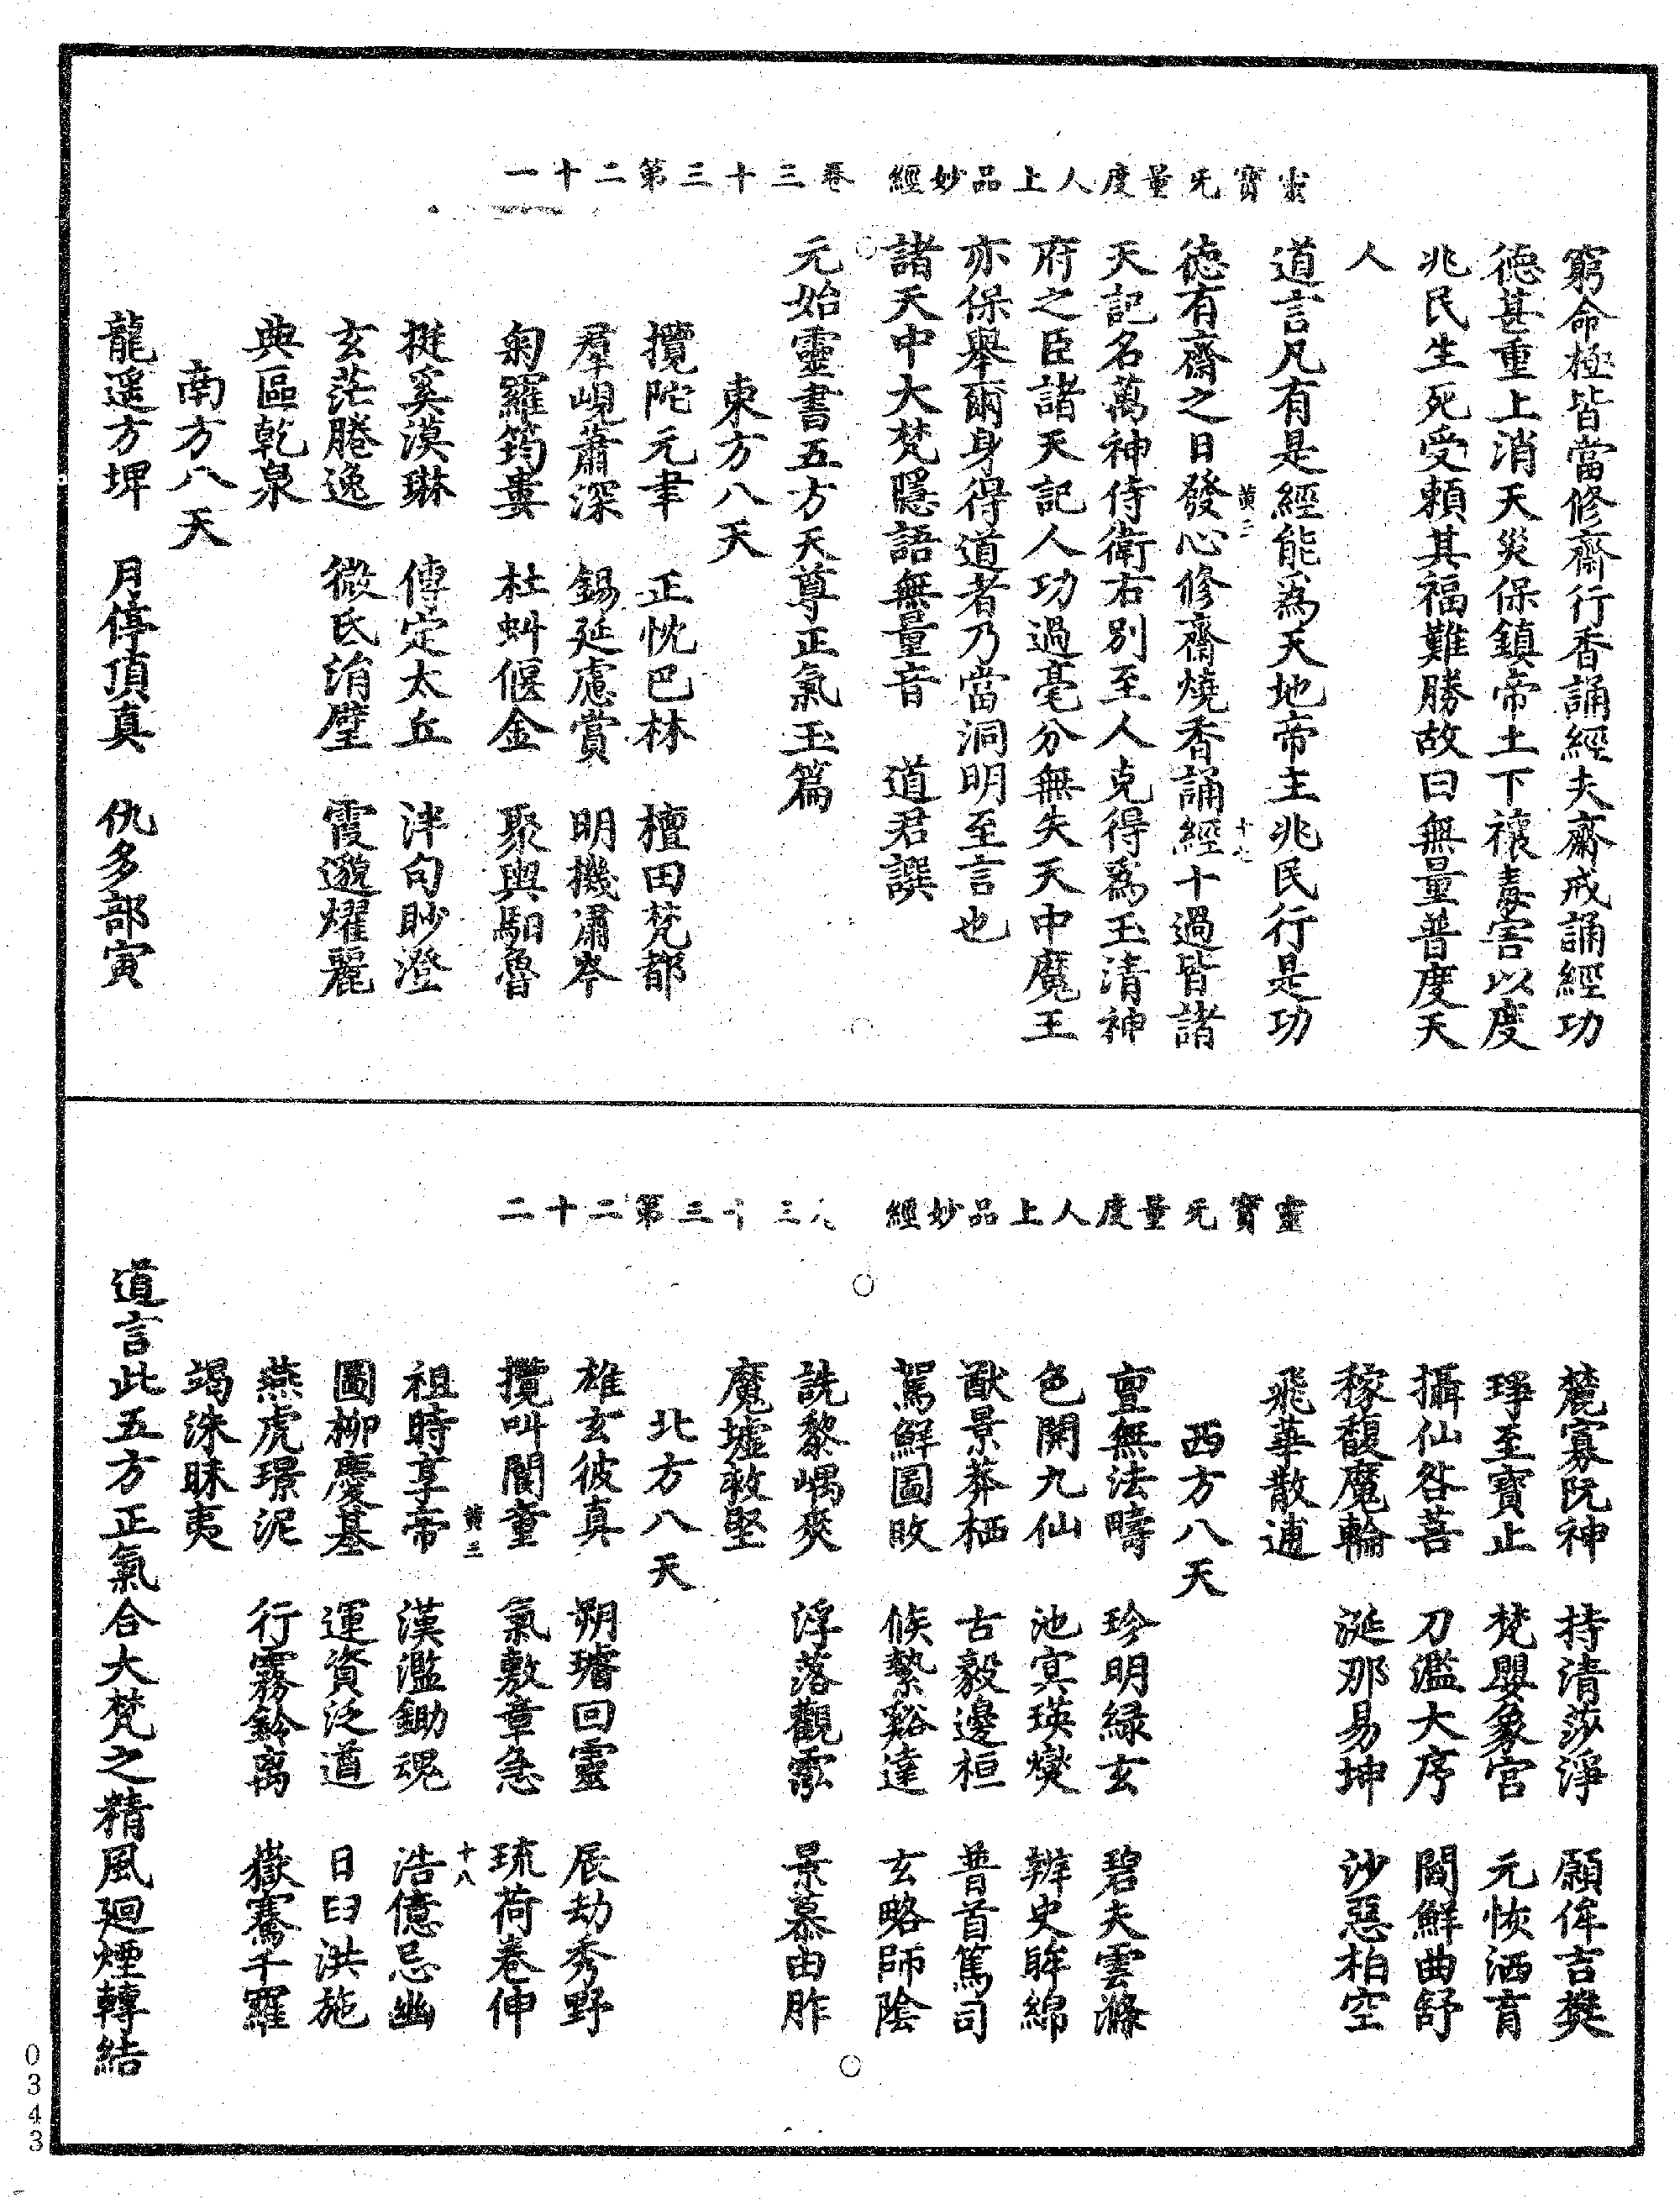 靈寶无量度人上品妙經　卷三十三第二十一
窮命極皆當修齋行香誦經夫齋戒誦經功
德甚重上消天災保鎮帝土下禳毒害以度
兆民生死受賴其福難勝故曰無量普度天
人
道言凡有是經能爲天地帝主兆民行是功
黃三　十七
德有齋之日發心修齋燒香誦經十過皆諸
天記名萬神侍衛右別至人克得爲玉清神
府之臣諸天記人功過毫分無失天中魔王
亦保舉爾身得道者乃當洞明至言也
諸天中大梵隱語無量音　道君譔
元始靈書五方天尊正氣玉篇
東方八天
攬陀元聿　正忱巴林　檀田梵都
羣峴蕭深　錫延慮賞　明機凊岑
匊羅筠婁　杜虯偃金　聚與馹魯
挺奚漠琳　傳定太丘　泮句眇澄
玄茫勝逸　微氏消璧　霞邈燿麗
典區乾泉
南方八天
龍遥方埤　月停頂真　仇多部寅
靈寶无量度人上品妙經　三十三第二十二
麓寡阮神　持清莎淨　願侔吉樊
琤至寶止　梵嬰象宫　元恢洒育
攝仙咎菩　刀濫大序　閻鮮曲舒
稼馥魔輪　涎那易坤　沙惡柏空
飛華散逋
西方八天
亶無法疇　珍明緑玄　碧夫雲滌
色開九仙　池冥瑛爕　辨史眸綿
猷景莽栖　古毅邊桓　普首篤司
駕鮮圖敗　候縶谿達　玄略師陰
詵黎嵎爽　浮落觀霐　景慕由胙
魔墟敕堅
北方八天
雄玄彼真　朔璿回靈　辰劫秀野
攬叫閽童　氣敷章急　琉荷卷伸
黃三　十八
祖時享帝　漢濫鋤魂　浩億忌幽
圖柳慶基　運資泛道　日臼洪施
燕虎璟泥　行霧鈴离　嶽騫千羅
竭洙昧夷
道言此五方正氣合大梵之精風廻煙轉結
0343